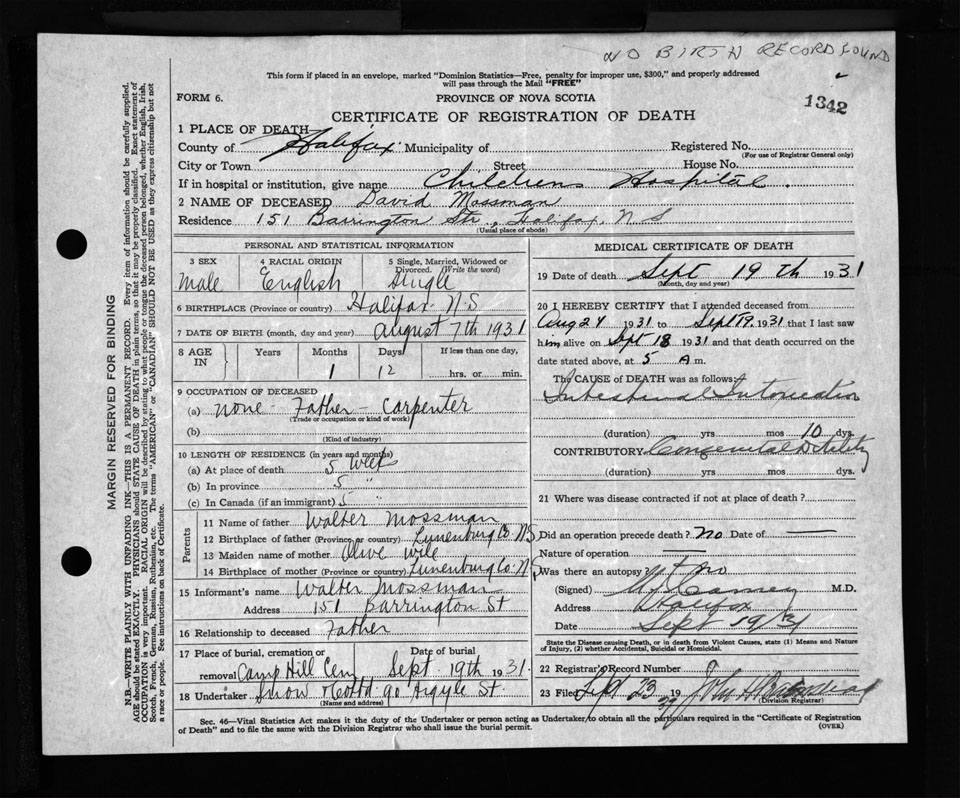 NO BIRTH RECORD FOUND
This form if placed in an envelope, marked "Dominion Statistics—Free, penalty for improper use, $300," and properly addressed
will pass through the Mail "FREE"
FORM 6.
PROVINCE OF NOVA SCOTIA
1342
CERTIFICATE OF REGISTRATION OF DEATH
1 PLACE OF DEATH
County of Halifax Municipality of Registered No.
(For use of Registrar General only)
City or Town Street House No.
If in hospital or institution, give name Childrens Hospital.
2 NAME OF DECEASED David Mossman
Residence 151 Barrington Str, Halifax, N S
(Usual place of abode)
PERSONAL AND STATISTICAL INFORMATION
3 SEX 4 RACIAL ORIGIN 5 Single, Married, Widowed or
Divorced. (Write the word)
Male English Single
6 BIRTHPLACE (Province or country) Halifax N.S
7 DATE OF BIRTH (month, day and year) August 7th 1931
8 AGE IN Years Months Days If less than one day,
1 12 hrs. or min.
9 OCCUPATION OF DECEASED
(a) none - Father - Carpenter
(Trade or occupation or kind of work)
(b)
(Kind of industry)
10 LENGTH OF RESIDENCE (in years and months)
(a) At place of death 5
(b) In province 5 "
(c) In Canada (if an immigrant) 5 "
Parents
11 Name of father Walter Mossman
12 Birthplace of father (Province or country) Lunenburg Co. N S
13 Maiden name of mother Olive
14 Birthplace of mother (Province or country) Lunenburg Co. N S
15 Informant's name Walter Mossman
Address 151 Barrington St
16 Relationship to deceased Father
17 Place of burial, cremation or Date of burial
removal Camp Hill Cem Sept. 19th 1931
18 Undertaker Snow & 90 Argyle St
(Name and address)
MEDICAL CERTIFICATE OF DEATH
19 Date of death Sept 19th 1931
(Month, day and year)
20 I HEREBY CERTIFY that I attended deceased from
Aug 24 1931 to Sept 19 1931 that I last saw
him alive on Sept 18 1931 and that death occurred on the
date stated above, at 5 A m.
The CAUSE OF DEATH was as follows:
Intestinal Intoxication
(duration) yrs mos 10 dys.
CONTRIBUTORY Congenital Debility
(duration) yrs mos dys.
21 Where was disease contracted if not at place of death?
Did an operation precede death? No Date of —
Nature of operation —
Was there an autopsy no
(Signed) M.D.
Address Halifax
Date Sept 19/31
State the Disease causing Death, or in death from Violent Causes, state (1) Means and Nature
of Injury, (2) whether Accidental, Suicidal or Homicidal.
22 Registrar's Record Number
23 Filed Sept 23 1931 John
(Division Registrar)
Sec. 46—Vital Statistics Act makes it the duty of the Undertaker or person acting as Undertaker to obtain all the particulars required in the "Certificate of Registration
of Death" and to file the same with the Division Registrar who shall issue the burial permit.
(OVER)
MARGIN RESERVED FOR BINDING
N.B.—WRITE PLAINLY WITH UNFADING INK—THIS IS A PERMANENT RECORD. Every item of information should be carefully supplied.
AGE should be stated EXACTLY. PHYSICIANS should STATE CAUSE OF DEATH in plain terms, so that it may be properly classified. Exact statement of
OCCUPATION is very important. RACIAL ORIGIN will be described by stating to what people or tongue the deceased person belonged, whether English, Irish,
Scotch, French, German, Russian, Ruthenian, etc. The terms "AMERICAN" or "CANADIAN" SHOULD NOT BE USED as they express citizenship but not
a race or people. See instructions on back of Certificate.